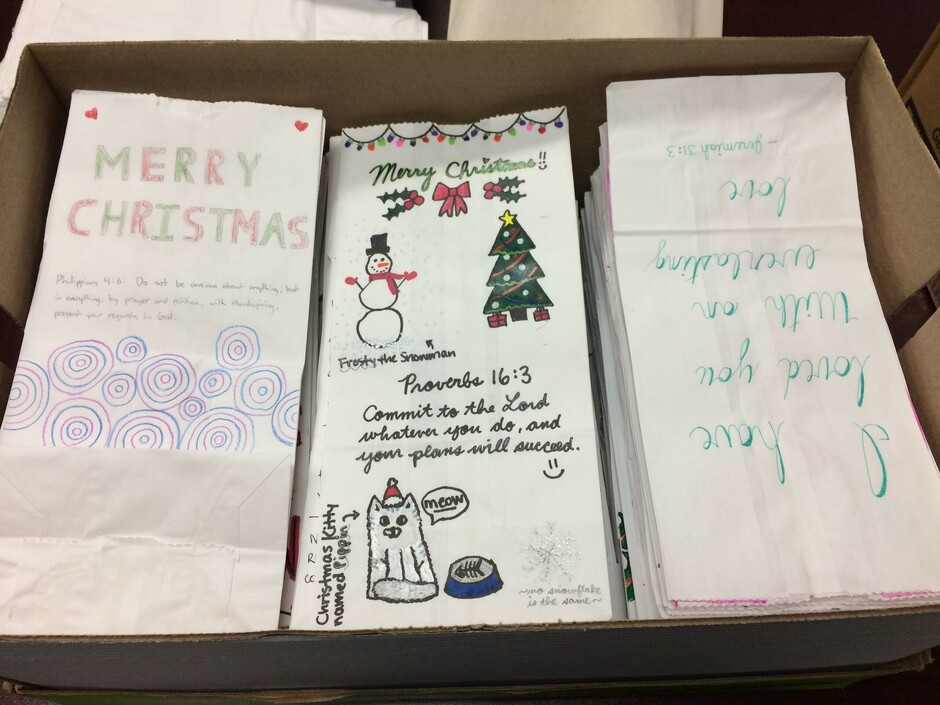 MERRY
CHRISTMAS
Philippians 4:6: Do not be anxious about anything, but
in everything, by prayer and petition, with thanksgiving,
present your requests to God.
Merry Christmas!!
Frosty the Snowman
Proverbs 16:3
Commit to the Lord
whatever you do, and
your plans will succeed.
meow
Christmas Kitty
named Pippin
~no snowflake
is the same~
I have
loved you
With an
everlasting
love
- Jeremiah 31:3